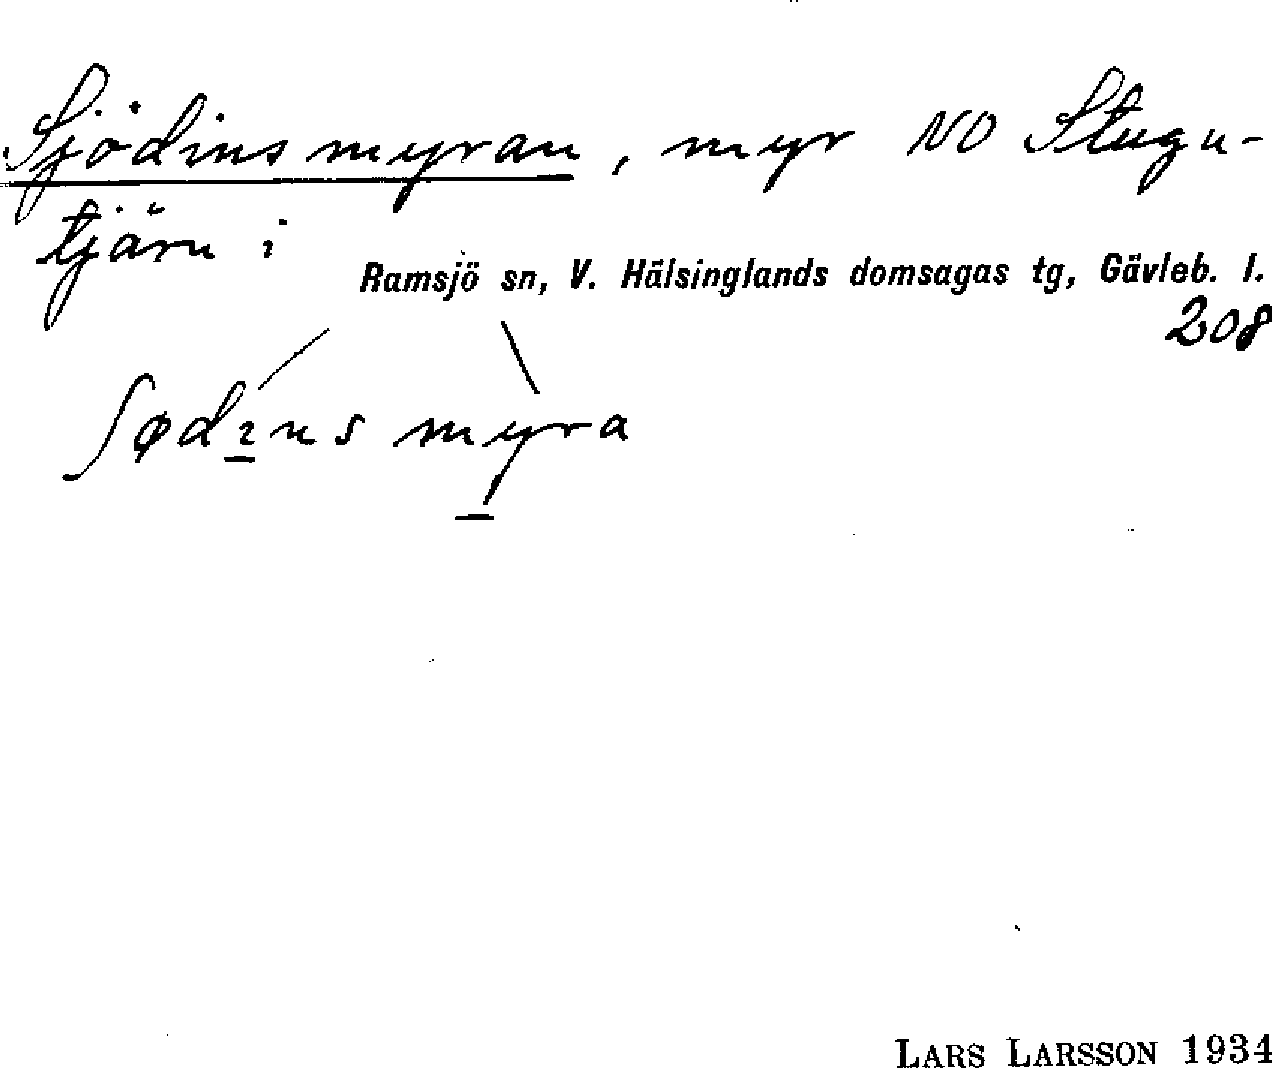 Sjödinsmyran, myr NO Stugu-
tjärn i
Ramsjö sn, V. Hälsinglands domsagas tg, Gävleb. l.
208
ʃødı̱nsmy̱ra
LARS LARSSON 1934